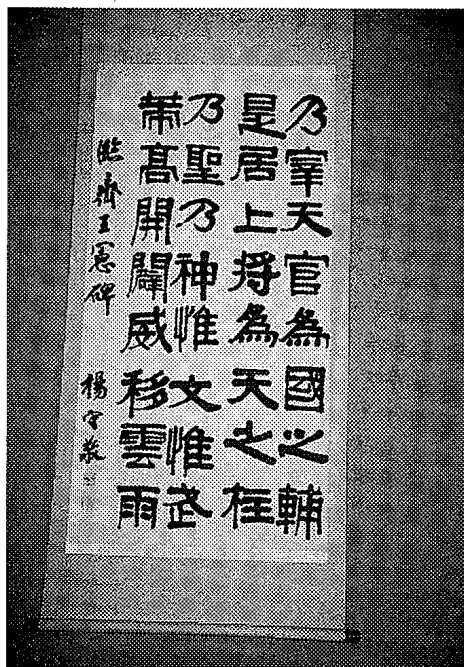 乃宰天官為國之輔
是居上將為天之柱
乃聖乃神惟文惟武
高開闢威移雲雨
臨齊王憲碑
楊守敬